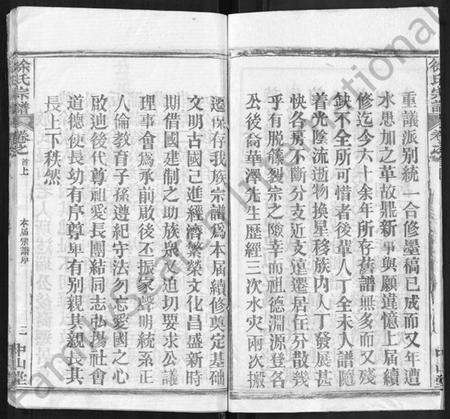 徐氏宗譜
卷之
重議派別統一合修墨稿已成而又年遭
水患加之革故鼎新爭與願違憶上屆續
修迄今六十余年所存舊譜無多而又殘
缺不全所可惜者後輩人丁全未入譜隨
着光陰流逝物換星移族內人丁發展甚
快各房不斷分支近支遠遷居住分散幾
乎有脫族裂宗之險幸而祖德淵源登名
公後裔華澤先生歷經三次水灾兩次搬
中山堂
遷保存我族宗譜爲本屆續修奠定基础
文明古國已進經濟繁榮文化昌盛新時
期借國建制之助族衆又迫切要求公議
理事會爲承前啟後丕振家聲明統系正
人倫教育子孫遵紀守法勿忘愛國之心
啟迪後代尊祖愛長團結同志弘揚社會
道德使長幼有序尊卑有別親其親長其
長上下秩然
徐氏宗譜
卷之 首上
二 中山堂
Family Search International